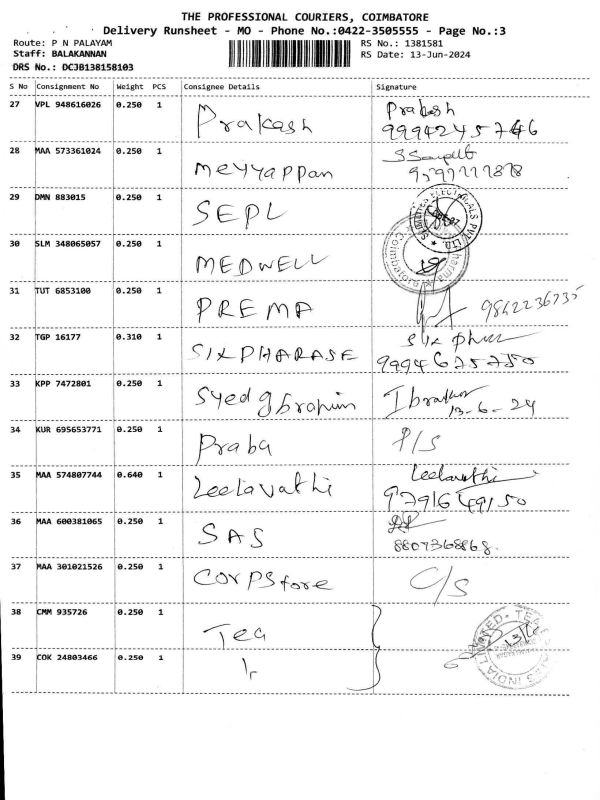 THE PROFESSIONAL COURIERS, COIMBATORE
Delivery Runsheet - MO - Phone No.:0422-3505555 - Page No.:3
Route: P N PALAYAM RS No.: 1381581
Staff: BALAKANNAN RS Date: 13-Jun-2024
DRS No.: DCJB138158103
S No Consignment No Weight PCS Consignee Details Signature
27 VPL 948616026 0.250 1 Prakash Prakash
28 MAA 573361024 0.250 1 Meyyappan
29 DMN 883015 0.250 1 SEPL
30 SLM 348065057 0.250 1 MEDWELL
31 TUT 6853100 0.250 1 PREMA 9842236735
32 TGP 16177 0.310 1 SIXPHARASE
9994675750
33 KPP 7472801 0.250 1 Syed Ibrahim Ibrahim
13-6-24
34 KUR 695653771 0.250 1 Praba P/S
35 MAA 574807744 0.640 1 Leelavathi Leelavathi
9791649150
36 MAA 600381065 0.250 1 SAS
8807368868.
37 MAA 301021526 0.250 1 Corpstore C/S
38 CMM 935726 0.250 1 Tea
39 COK 24803466 0.250 1